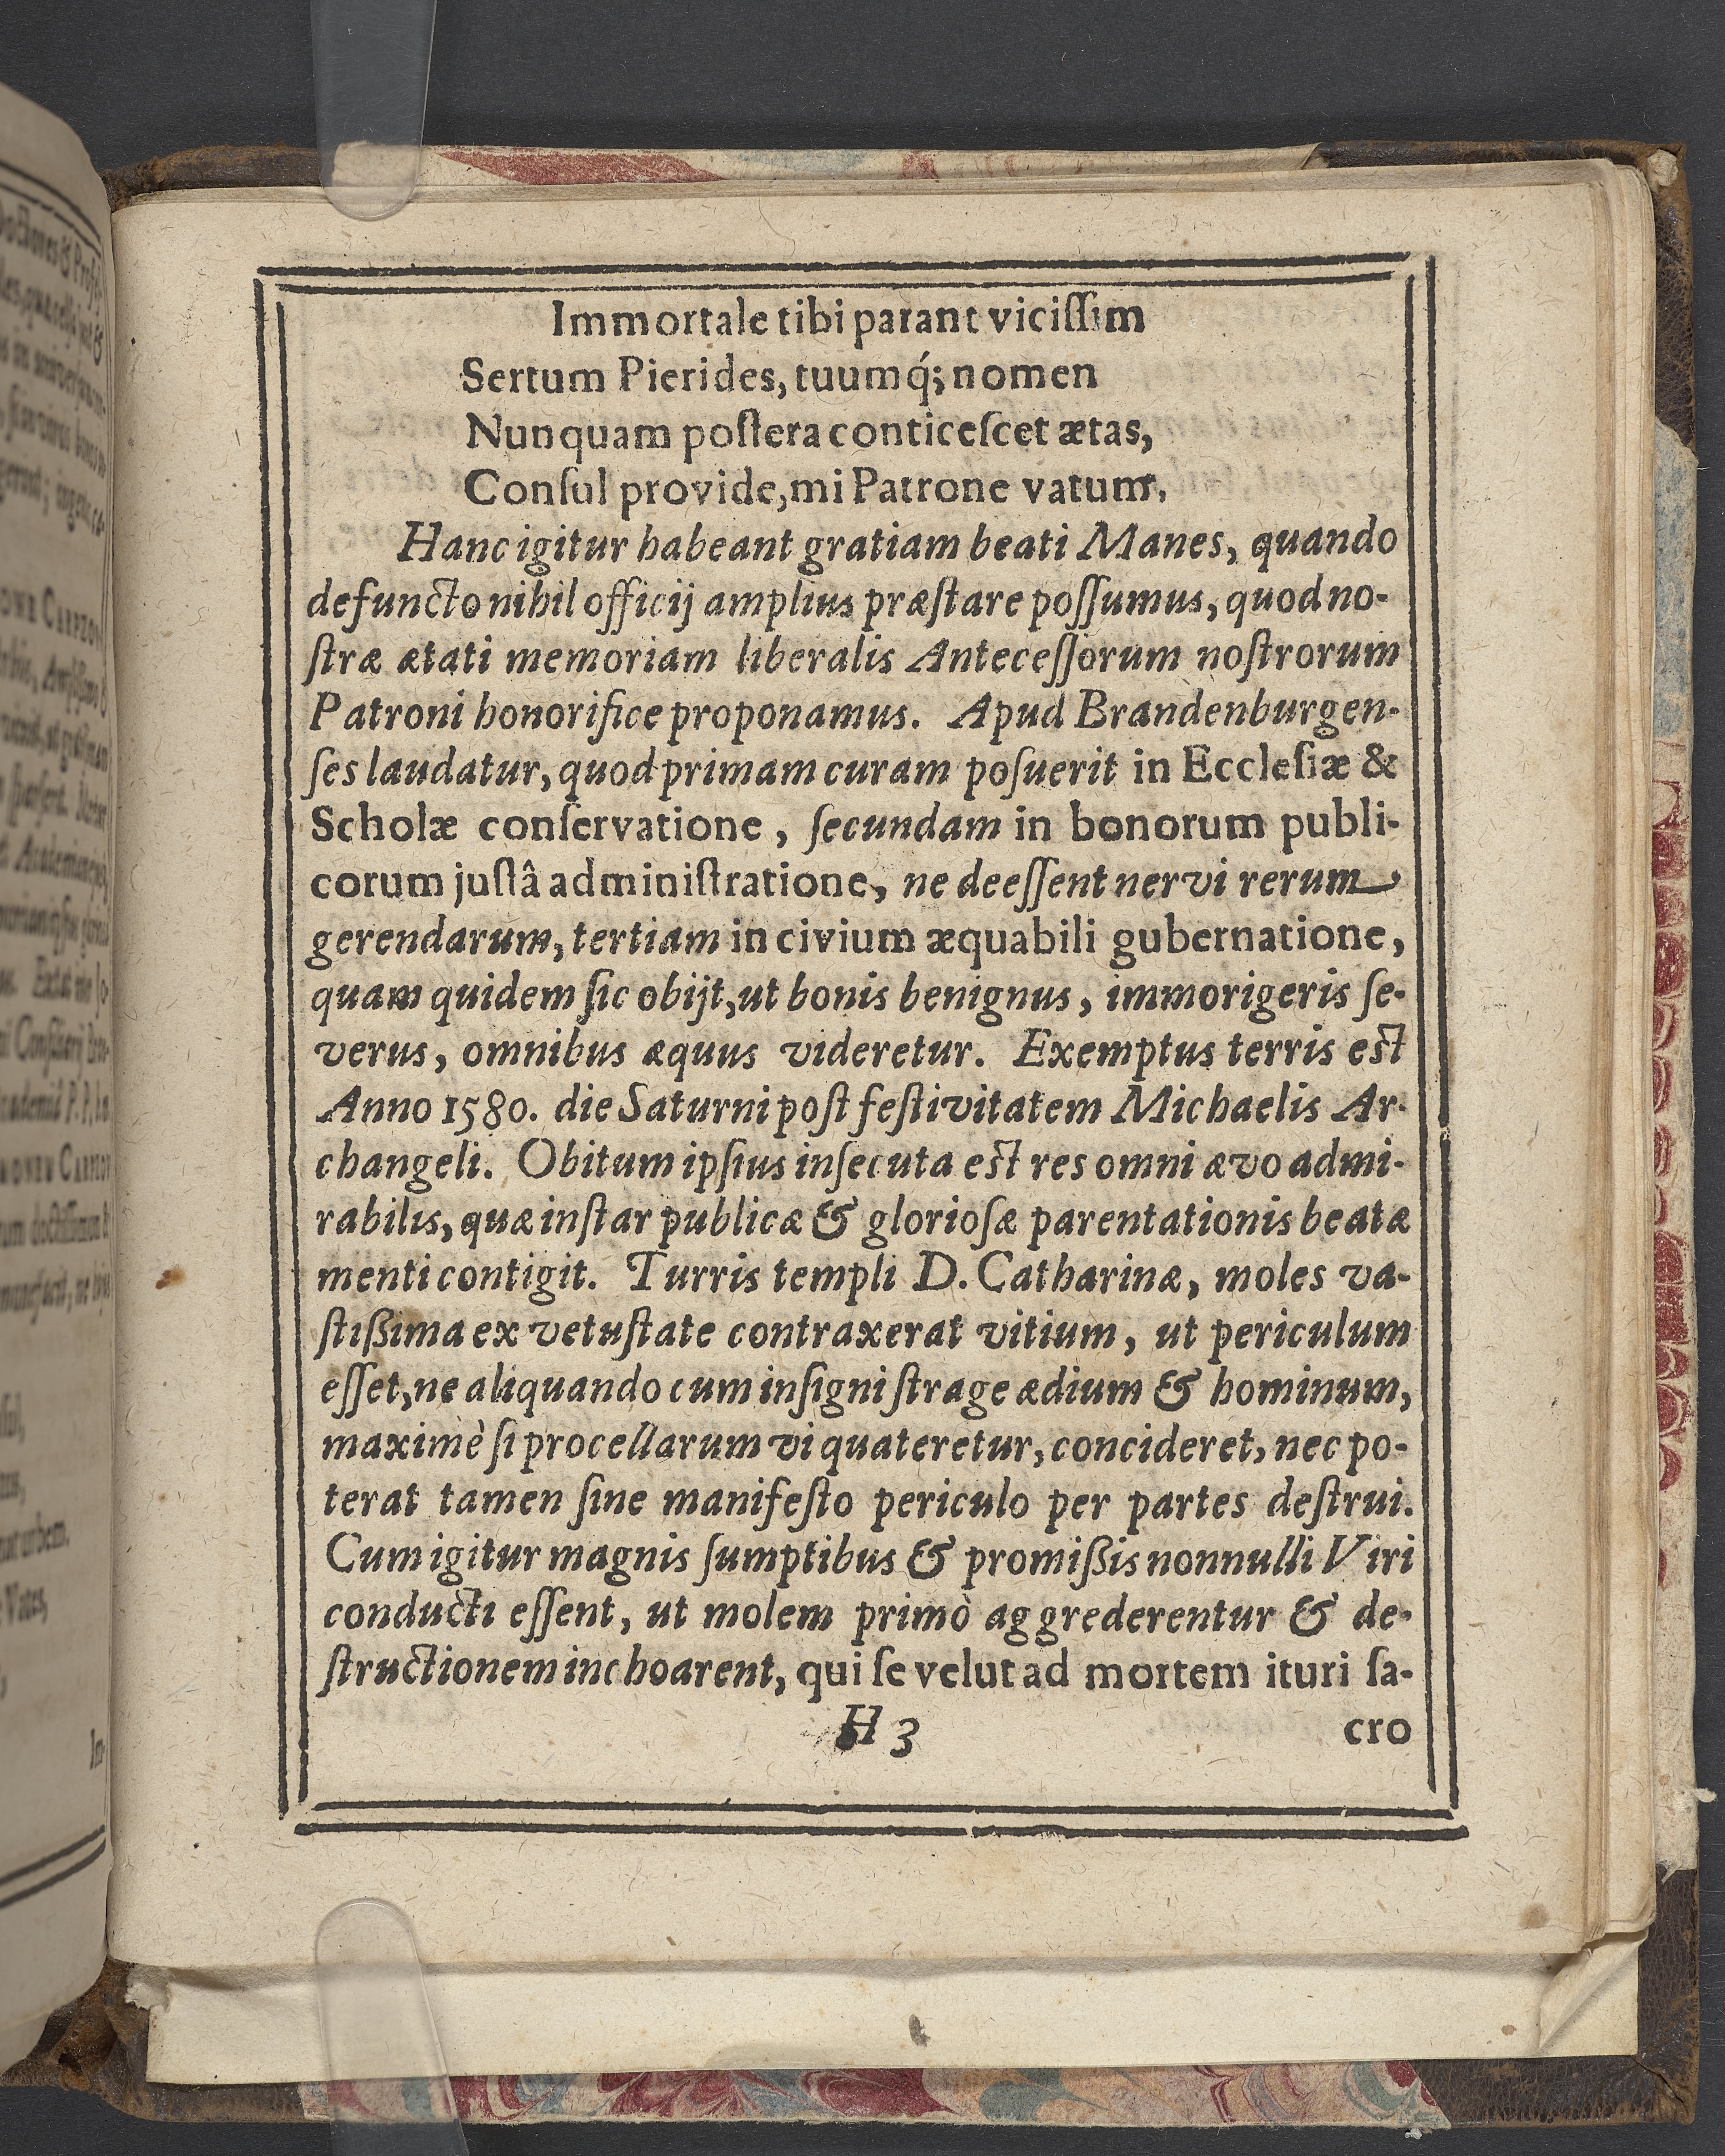 Immortale tibi parant viciſſim
Sertum Pierides, tuumq́; nomen
Nunquam poſtera conticeſcet ætas,
Conſul provide, mi Patrone vatum.
Hanc igitur habeant gratiam beati Manes, quando
defuncto nihil officij amplius præſtare poſſumus, quod no-
ſtræ ætati memoriam liberalis Anteceſſorum noſtrorum
Patroni honorifice proponamus. Apud Brandenburgen-
ſes laudatur, quod primam curam poſuerit in Eccleſiæ &
Scholæ conſervatione, ſecundam in bonorum publi-
corum juſtâ adminiſtratione, ne deeſſent nervi rerum
gerendarum, tertiam in civium æquabili gubernatione,
quam quidem ſic obijt, ut bonis benignus, immorigeris ſe-
verus, omnibus æquus videretur. Exemptus terris eſt
Anno 1580. die Saturni poſt feſtivitatem Michaelis Ar-
changeli. Obitum ipſius inſecuta eſt res omni ævo admi-
rabilis, quæ inſtar publicæ & glorioſæ parentationis beatæ
menti contigit. Turris templi D. Catharinæ, moles va-
ſtißima ex vetuſtate contraxerat vitium, ut periculum
eſſet, ne aliquando cum inſigni ſtrage ædium & hominum,
maximè ſi procellarum vi quateretur, concideret, nec po-
terat tamen ſine manifeſto periculo per partes deſtrui.
Cum igitur magnis ſumptibus & promißis nonnulli Viri
conducti eſſent, ut molem primò aggrederentur & de-
ſtructionem inchoarent, qui ſe velut ad mortem ituri ſa-
H 3 cro